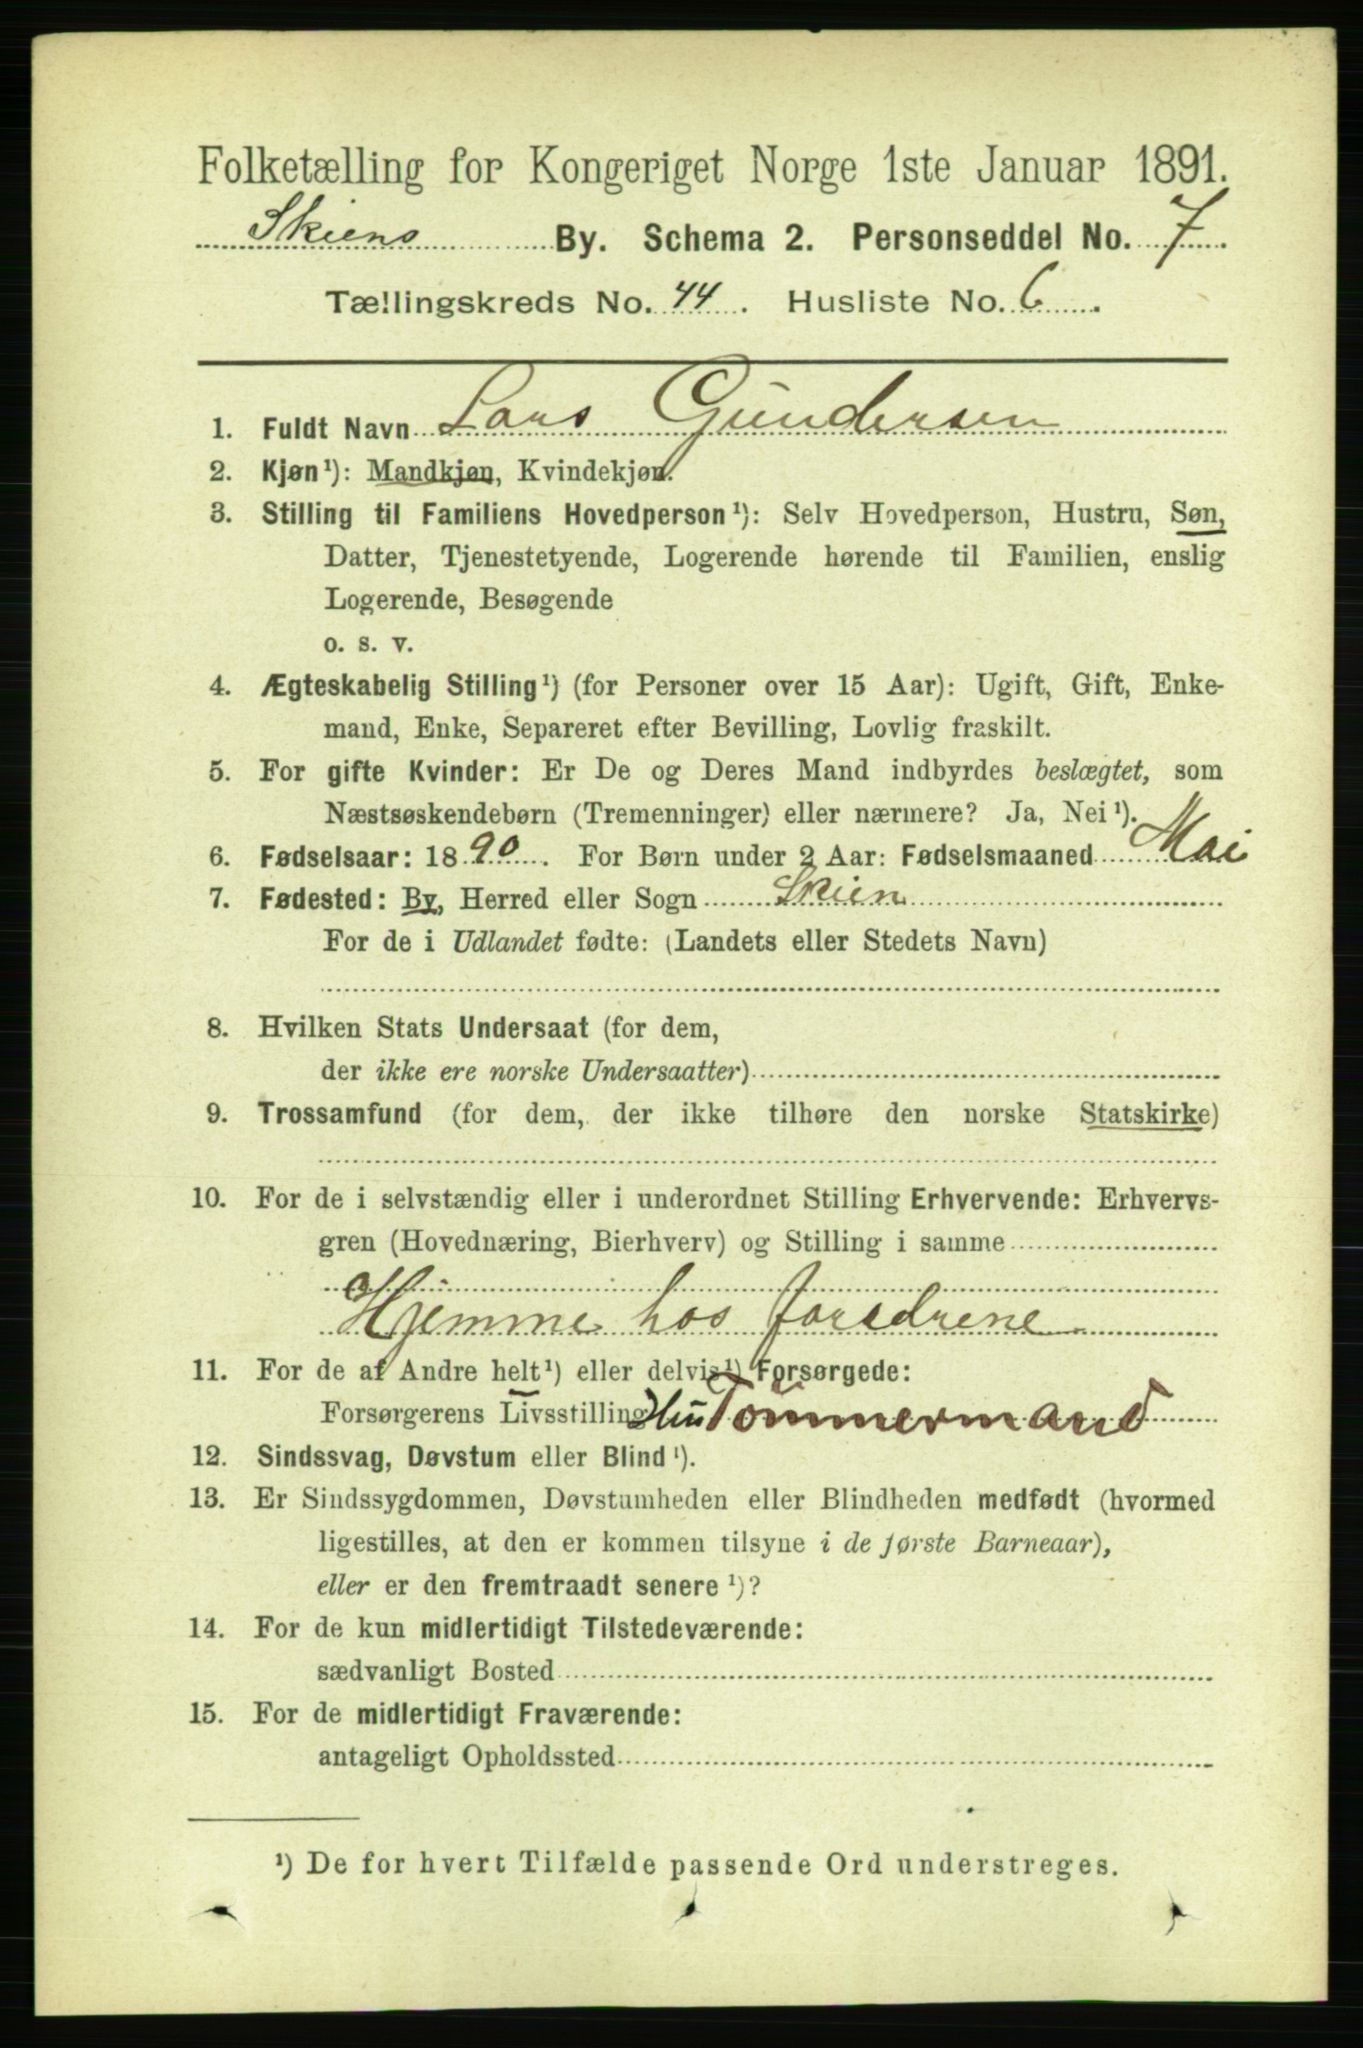 Folketælling for Kongeriget Norge 1ste Januar 1891.
Skiens By. Schema 2. Personseddel No. 7
Tællingskreds No. 44. Husliste No. 6.
1. Fuldt Navn Lars Gundersen
2. Kjøn¹): Mandkjøn, Kvindekjøn.
3. Stilling til Familiens Hovedperson¹): Selv Hovedperson, Hustru, Søn,
Datter, Tjenestetyende, Logerende hørende til Familien, enslig
Logerende, Besøgende
o. s. v.
4. Ægteskabelig Stilling¹) (for Personer over 15 Aar): Ugift, Gift, Enke-
mand, Enke, Separeret efter Bevilling, Lovlig fraskilt.
5. For gifte Kvinder: Er De og Deres Mand indbyrdes beslægtet, som
Næstsøskendebørn (Tremenninger) eller nærmere? Ja, Nei¹).
6. Fødselsaar: 1890. For Børn under 2 Aar: Fødselsmaaned Mai
7. Fødested: By, Herred eller Sogn Skien
For de i Udlandet fødte: (Landets eller Stedets Navn)
8. Hvilken Stats Undersaat (for dem,
der ikke ere norske Undersaatter)
9. Trossamfund (for dem, der ikke tilhøre den norske Statskirke)
10. For de i selvstændig eller i underordnet Stilling Erhvervende: Erhvervs-
gren (Hovednæring, Bierhverv) og Stilling i samme
Hjemme hos foreldrene
11. For de af Andre helt¹) eller delvis¹) Forsørgede:
Forsørgerens Livsstilling Tömmermand
12. Sindssvag, Døvstum eller Blind¹).
13. Er Sindssygdommen, Døvstumheden eller Blindheden medfødt (hvormed
ligestilles, at den er kommen tilsyne i de første Barneaar),
eller er den fremtraadt senere¹)?
14. For de kun midlertidigt Tilstedeværende:
sædvanligt Bosted
15. For de midlertidigt Fraværende:
antageligt Opholdssted
¹) De for hvert Tilfælde passende Ord understreges.